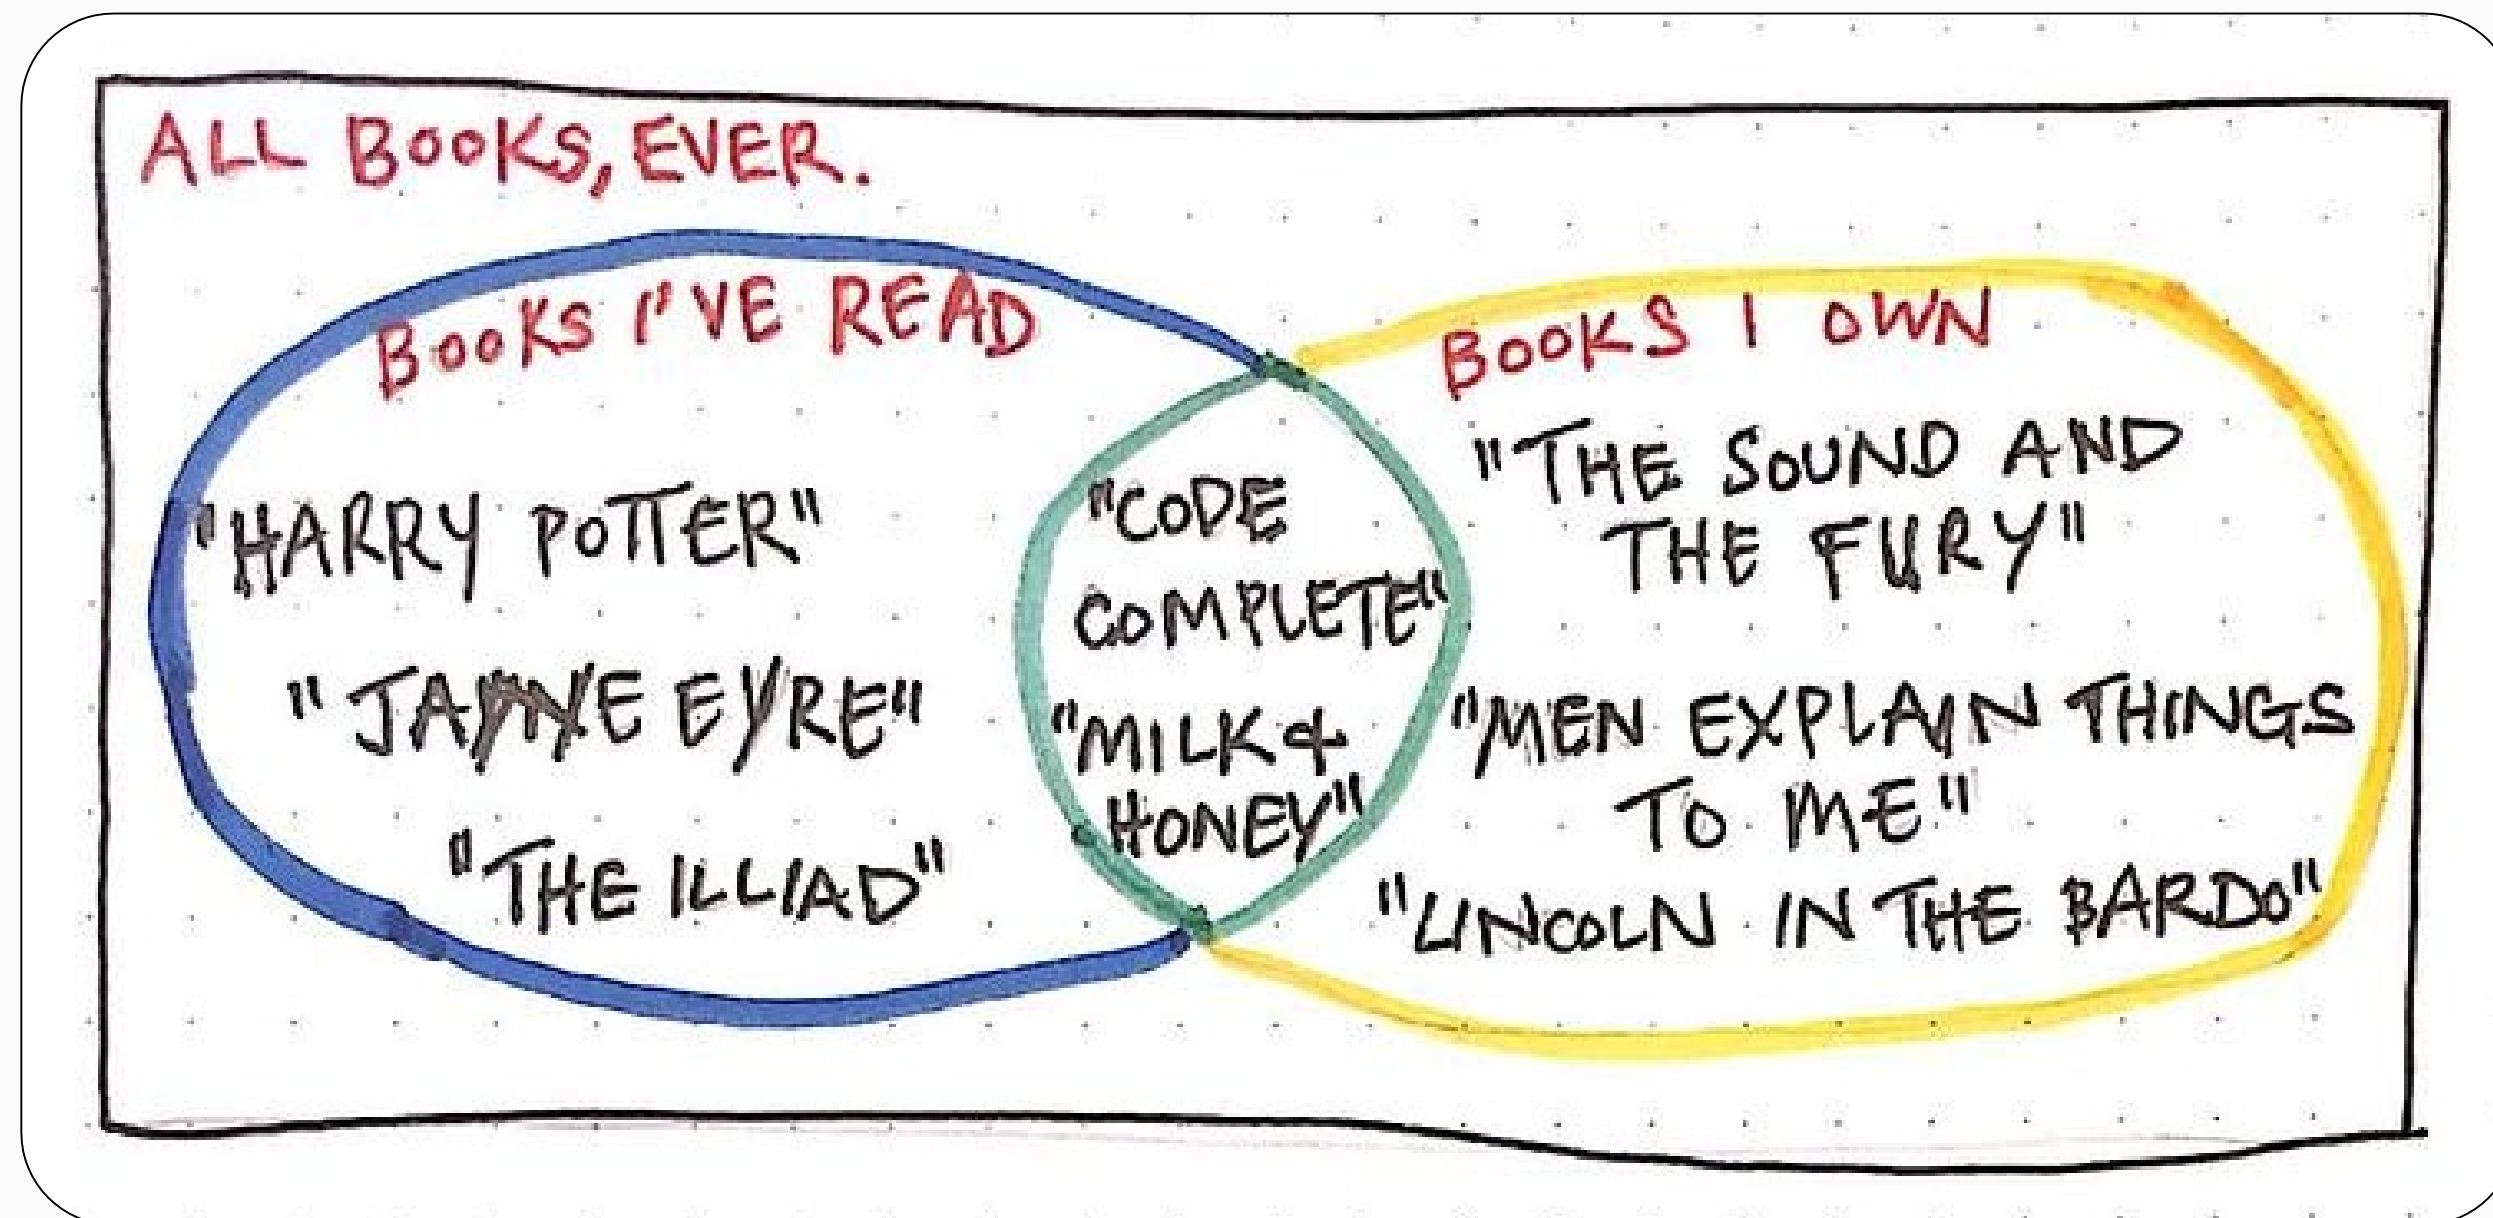 ALL BOOKS, EVER.
BOOKS I'VE READ
BOOKS I OWN
"HARRY POTTER"
"JAYNE EYRE"
"THE ILLIAD"
"CODE
COMPLETE"
"MILK &
HONEY"
"THE SOUND AND
THE FURY"
"MEN EXPLAIN THINGS
TO ME"
"LINCOLN IN THE BARDO"